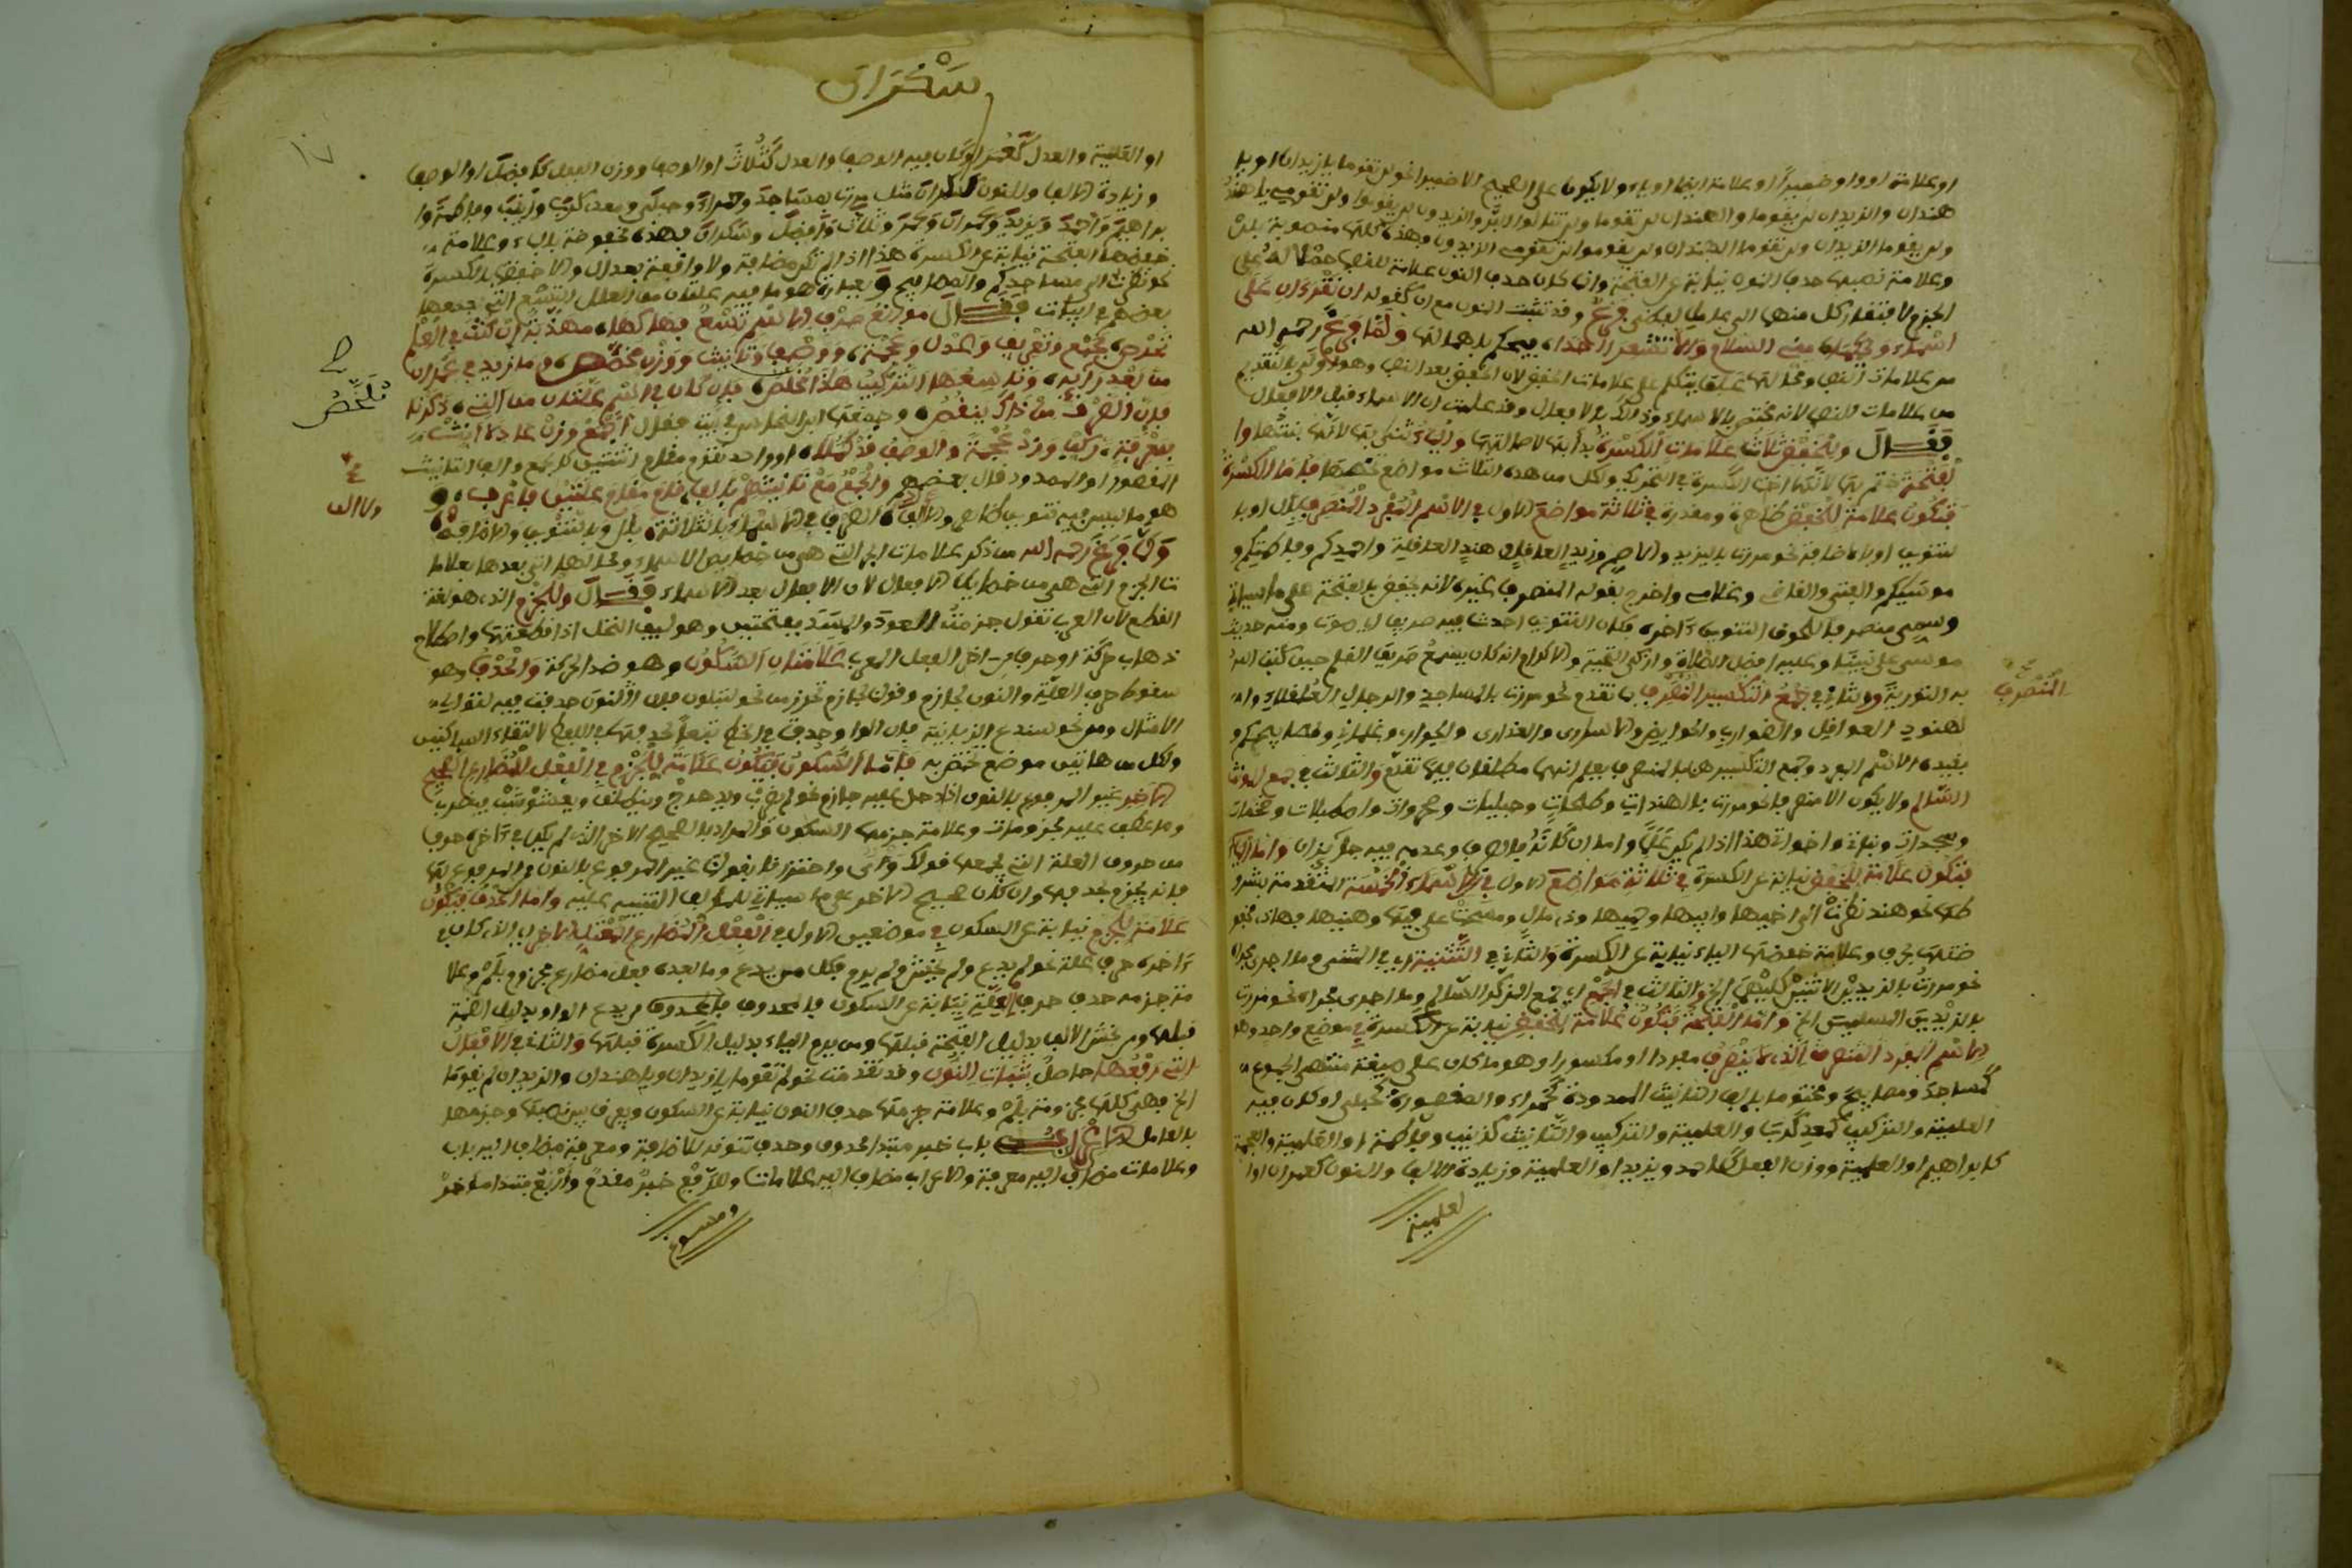 او علامة او واو ضمير او علامة ايضا او ياء ولا يكون على الصحيح الا ضميرا نحو لن تقوما يا زيدان او يا
هندان والزيدان لن يقوما والهندان لن تقوما ولن يقوموا ولن تقومي يا هند
ولن يقوما الزيدان ولن تقوما الهندان ولن يقوموا الزيدون وهذه كلها منصوبة بلن
وعلامة نصبها حذف النون نيابة عن الفتحة وان كان حذف النون علامة للنصب
الجزم لاقتضاء كل منهما الى عامل فرع وقد تثبت النون مع ان كقوله ان تقرءان على
اسماء ويحكما مني السلام والا تشعرا احدا ولما فرغ رحمه الله
من علامات النصب يتكلم على علامات الخفض لان الخفض بعد النصب وهو اولى بالتقديم
من علامات النصب لانه مختص بالاسماء وقد علمت ان الاسماء قبل الافعال
فقال وللخفض ثلاث علامات الكسرة بدأ بها لاصالتها والياء ثنى بها لانها بنتها وا
لفتحة ختم بها لانها اخت الكسرة في التحريك ولكل من هذه الثلاث مواضع تخصها فاما الكسرة
فتكون علامة للخفض ظاهرة ومقدرة في ثلاثة مواضع الاول في الاسم المفرد المنصرف بال او با
لتنوين او بالاضافة نحو مررت بزيد والقاضي وزيد العاقل وهند العاقلة واحمدكم وفاطمتكم و
موسيكم والفتى والقاضي وغلامي واخرج بقوله المنصرف غيره لانه يخفض بالفتحة على ما سيأتي
وسمي منصرفا للحوق التنوين ءاخره فكان التنوين احدث فيه صريفا اي صوتا ومنه حديث
موسى على نبينا وعليه افضل الصلاة وازكى التحية والاكرام انه كان يسمع صريف القلم حين كتب الله
به التورية والثاني في جمع التكسير المنصرف بما تقدم نحو مررت بالمساجد والرجال العقلاء وا
لهنود العواقل والضوارب والحوايض والاسارى والعذارى والجوار وغلماني وقضاياكم و
يفيده الاسم المفرد وجمع التكسير هنا بالمنصرف يعلم انهما مطلقان فيما تقدم والثالث في جمع المؤنث
السالم ولا يكون الا منصرفا نحو مررت بالهندات وطلحات وحبليات وصحروات واصطبلات وحمامات
وسجدات وبنات واخوات هذا اذا لم يكن علما واما ان كان فالصرف وعدمه فيه جايزان واما الياء
فتكون علامة للخفض نيابة عن الكسرة في ثلاثة مواضع الاول في الاسماء الخمسة المتقدمة بشرو
طها نحو هند نظرت الى اخيها وابيها وحميها وذي مال ومسحت على فيها وهنيها فهاذه مخفو
ضة بحرف وعلامة خفضها الياء نيابة عن الكسرة والثاني في التثنية اي في المثنى وما اجري مجراه
نحو مررت بالزيدين الاثنين كليهما الخ والثالث في الجمع اي جمع المذكر السالم وما اجرى مجراه نحو مررت
بالزيدين المسلمين الخ واما الفتحة فتكون علامة للخفض نيابة عن الكسرة في موضع واحد وهو
الاسم المفرد المنصرف الذي لا ينصرف مفردا او مكسورا وهو ما كان على صيغة منتهى الجموع
كمساجد ومصابيح ومختوما بالف التانيث الممدودة كحمراء والمقصورة كحبلى او كان فيه
العلمية والتركيب كمعد كرب والعلمية والتانيث كزينب وفاطمة او العلمية والعجمة
كابراهيم او العلمية ووزن الفعل كاحمد ويزيد او العلمية وزيادة الالف والنون كعمران او ا
لعلمية
المنصرف
سكران
او العلمية والعدل كعمر او كان فيه الوصف والعدل كثلاث او الوصف ووزن الفعل كافضل او الوصف
وزيادة الالف والنون كسكران مثل مررت بمساجد وحمراء وحبلى ومعد كرب وزينب وفاطمة وا
براهيم واحمد ويزيد وعمران وعمر وثلاث وافضل وسكران فهذه مخفوضة بالباء وعلامة
خفضها الفتحة نيابة عن الكسرة هذا اذا لم تكن مضافة ولا واقعة بعد ال والا خفضت بالكسرة
نحو نظرت الى مساجدكم والمصابيح وهو ما فيه علتان من العلل التسع التي جمعها
بعضهم في ابيات فقال موانع صرف الاسم تسع فهاكها مهذبة ان كنت في العلم
تحرص جمع وتعريف وعدل وعجمة ووصف وتانيث ووزن مخصص وما زيد في عمران
من بعد رايه وتاسعها التركيب هذا ملخص فان كان في اسم علتان من التي ذكرنا
فان الصرف من ذاك ينقص وجمعها ابن النحاس في بيت فقال اجمع وزن عادلا انث
بمعرفة ركب وزد عجمة والوصف قد كملا او واحد تقوم مقام اثنتين كالجمع والف التانيث
المقصور او الممدود قال بعضهم والجمع مع تانيثهم بالف قام مقام علتين فاعرف و
هو ما ليس فيه تنوين الصرف في الاسماء بالثلاثة بال وبالتنوين والاضافة
ولما فرغ رحمه الله من ذكر علامات الجر التي هي من خصايص الاسماء وعلاماتها اتى بعدها بعلاما
ت الجزم التي هي من خصايص الافعال لان الافعال بعد الاسماء فقال وللجزم الذي هو لغة
القطع لان العرب تقول جزمت العود والمسد بفتحتين وهو ليف النخل اذا قطعتها واصطلاحا
ذهاب حركة او حرف من ءاخر الفعل المعرب علامتان السكون وهو ضد الحركة والحذف وهو
سقوط حرف العلة والنون لجازم وقولنا لجازم تحرز من نحو لتبلون فان النون حذفت فيه لتوالي
الامثال ومن نحو سندع الزبانية فان الواو حذفت في الخط تبعا لحذفها في اللفظ لالتقاء الساكنين
ولكل من هاتين موضع تختص به فاما السكون فيكون علامة للجزم في الفعل المضارع الصحيح
الاخر غير المرفوع بالنون اذا دخل عليه جازم نحو لم يضرب ويدحرج وينطلق ويعشوشب فيضرب
وما عطف عليه مجزومات وعلامة جزمها السكون والمراد بالصحيح الاخر الذي لم يكن في ءاخره حرف
من حروف العلة التي يجمعها قولك واي واحترزنا بقولنا غير المرفوع بالنون من المرفوع بها
فانه يجزم بحذفها وان كان صحيح الاخر على ما سياتي للمؤلف التنبيه عليه واما الحذف فيكون
علامة للجزم نيابة عن السكون في موضعين الاول في الفعل المضارع المعتل الاخر اي الذي كان في
ءاخره حرف علة نحو لم يدع ولم يخش ولم يرم فكل من يدع وما بعده فعل مضارع مجزوم بلم وعلا
مة جزمه حذف حرف العلة نيابة عن السكون فالمحذوف من يدع الواو بدليل الضمة
قبلها ومن يخش الالف بدليل الفتحة قبلها ومن يرم الياء بدليل الكسرة قبلها والثاني في الافعال
التي رفعها حاصل بثبات النون وقد تقدمت نحو لم تقوما يا زيدان ويا هندان والزيدان لم يقوما
الخ فهي كلها مجزومة بلم وعلامة جزمها حذف النون نيابة عن السكون ويفرق بين نصبها وجزمها
بالعامل باب خبر مبتدا محذوف وحذف تنوينه للاضافة ومعرفة مضاف اليه باب
وعلامات مضاف اليه معرفة والاعراب مضاف اليه علامات وللرفع خبر مقدم واربع مبتدا مؤخر
ملخص